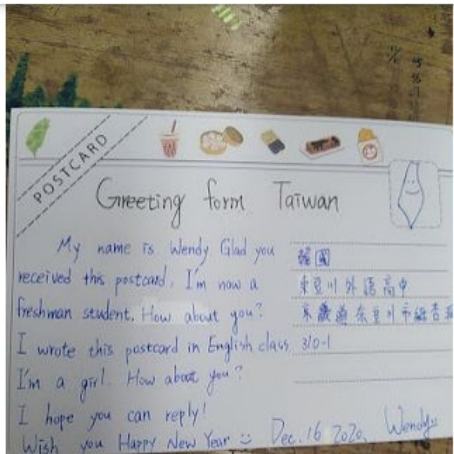 POSTCARD
Greeting form Taiwan
My name is Wendy Glad you
received this postcard. I'm now a
freshman student. How about you?
I wrote this postcard in English class
I'm a girl. How about you?
I hope you can reply!
Wish you Happy New Year
Dec. 16 2020 Wendy
韓國
東豆川外語高中
東豆川市
310-1